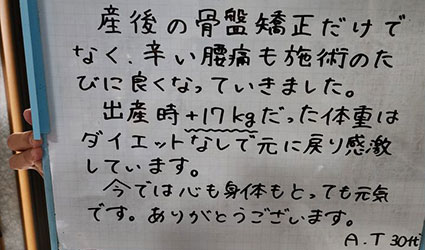 産後の骨盤矯正だけで
なく、辛い腰痛も施術のた
びに良くなっていきました。
出産時+17kgだった体重は
ダイエットなしで元に戻り感激
しています。
今では心も身体もとっても元気
です。ありがとうございます。
A.T 30代